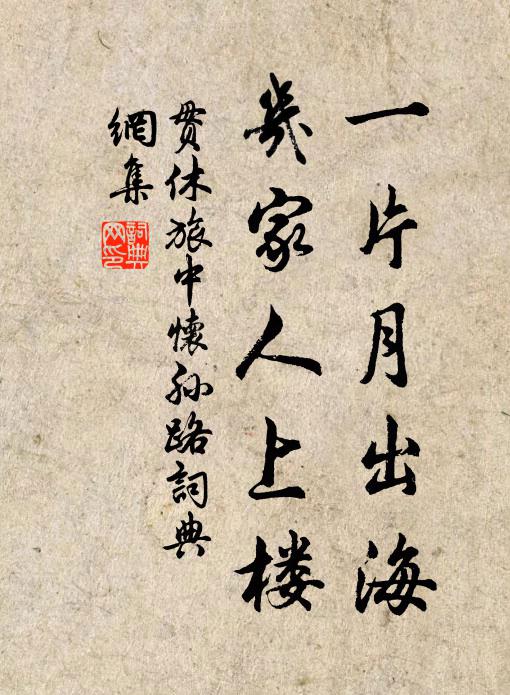 一片月出海
幾家人上楼
贯休旅中懷孙路詞典
網集
詞典
网印